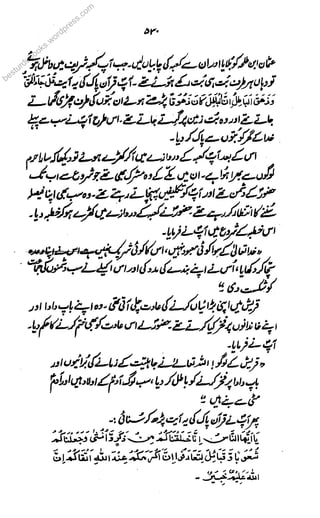 ۵۳۰
عثمان ابن طلحہ کو بلایا اور ان سے کعبہ کی چابیاں لیں۔ جب آپ کعبہ شریف میں داخل ہوئے
تو وہاں ہر طرف بت ہی بت رکھے ہوئے تھے۔ آپؐ قرآن پاک کی یہ آیت قُلْ جَاءَ الْحَقُّ
وَزَهَقَ الْبَاطِلُ اِنَّ الْبَاطِلَ كَانَ زَهُوْقًا پڑھتے ہوئے ان بتوں کی طرف چھڑی گھماتے
جاتے تھے اور وہ بت زمین پر گرتے جاتے تھے۔ اس طرح آپؐ نے سب سے پہلے
خدا کے گھر کو بتوں سے پاک کر دیا۔
اس کے بعد آپؐ کعبہ کے دروازے میں آ کر کھڑے ہوئے تو دیکھا کہ سارا حرم
لوگوں سے بھرا ہوا ہے۔ ان میں مکے کے وہ مشرک بھی تھے جو شروع سے اب تک
حضورؐ کے دشمن تھے اور آپؐ کو تکلیفیں پہنچاتے رہے تھے۔ وہ سب بھی اپنا فیصلہ
سننے کا انتظار کر رہے تھے۔ حضورؐ نے کعبہ کے دروازے میں کھڑے ہو کر خطبہ دیا۔
اس خطبہ کے شروع میں آپؐ نے فرمایا۔
"خدا تعالیٰ کے سوا کوئی معبود نہیں، اس کا کوئی شریک نہیں ہے اس نے اپنا وعدہ
سچا کر دکھایا، اُس نے اپنے بندے کی مدد کی اور اس، اکیلے نے سب دشمنوں کی جماعت
کو شکست دی"
قریش میں اپنی بڑائیاں کرنے کی عادت چلی آتی تھی۔ وہ اپنے باپ دادا اور
اپنے خاندانوں پر فخر کیا کرتے تھے۔ حضورؐ نے اس عادت کو بھی ختم کرنے کا حکم دیا۔
آپؐ نے فرمایا۔
"قریش کے لوگو! اللہ تعالےٰ نے جاہلیت کے زمانے کی بُرائیوں اور
باپ دادا پر فخر کرنے کو باطل کر دیا، سب لوگ آدمؑ کے اولاد ہیں اور آدمؑ
مٹی سے بنے ہیں"
پھر آپؐ نے قرآن پاک کی یہ آیت پڑھ کر سُنائی:-
يَا اَيُّهَا النَّاسُ اِنَّا خَلَقْنَاكُمْ مِنْ ذَكَرٍ وَّ اُنْثٰى وَجَعَلْنَاكُمْ
شُعُوْبًا وَّ قَبَائِلَ لِتَعَارَفُوْا اِنَّ اَكْرَمَكُمْ عِنْدَ اللهِ اَتْقَاكُمْ اِنَّ
اللهَ عَلِيْمٌ خَبِيْرٌ۔
besturdubooks.wordpress.com